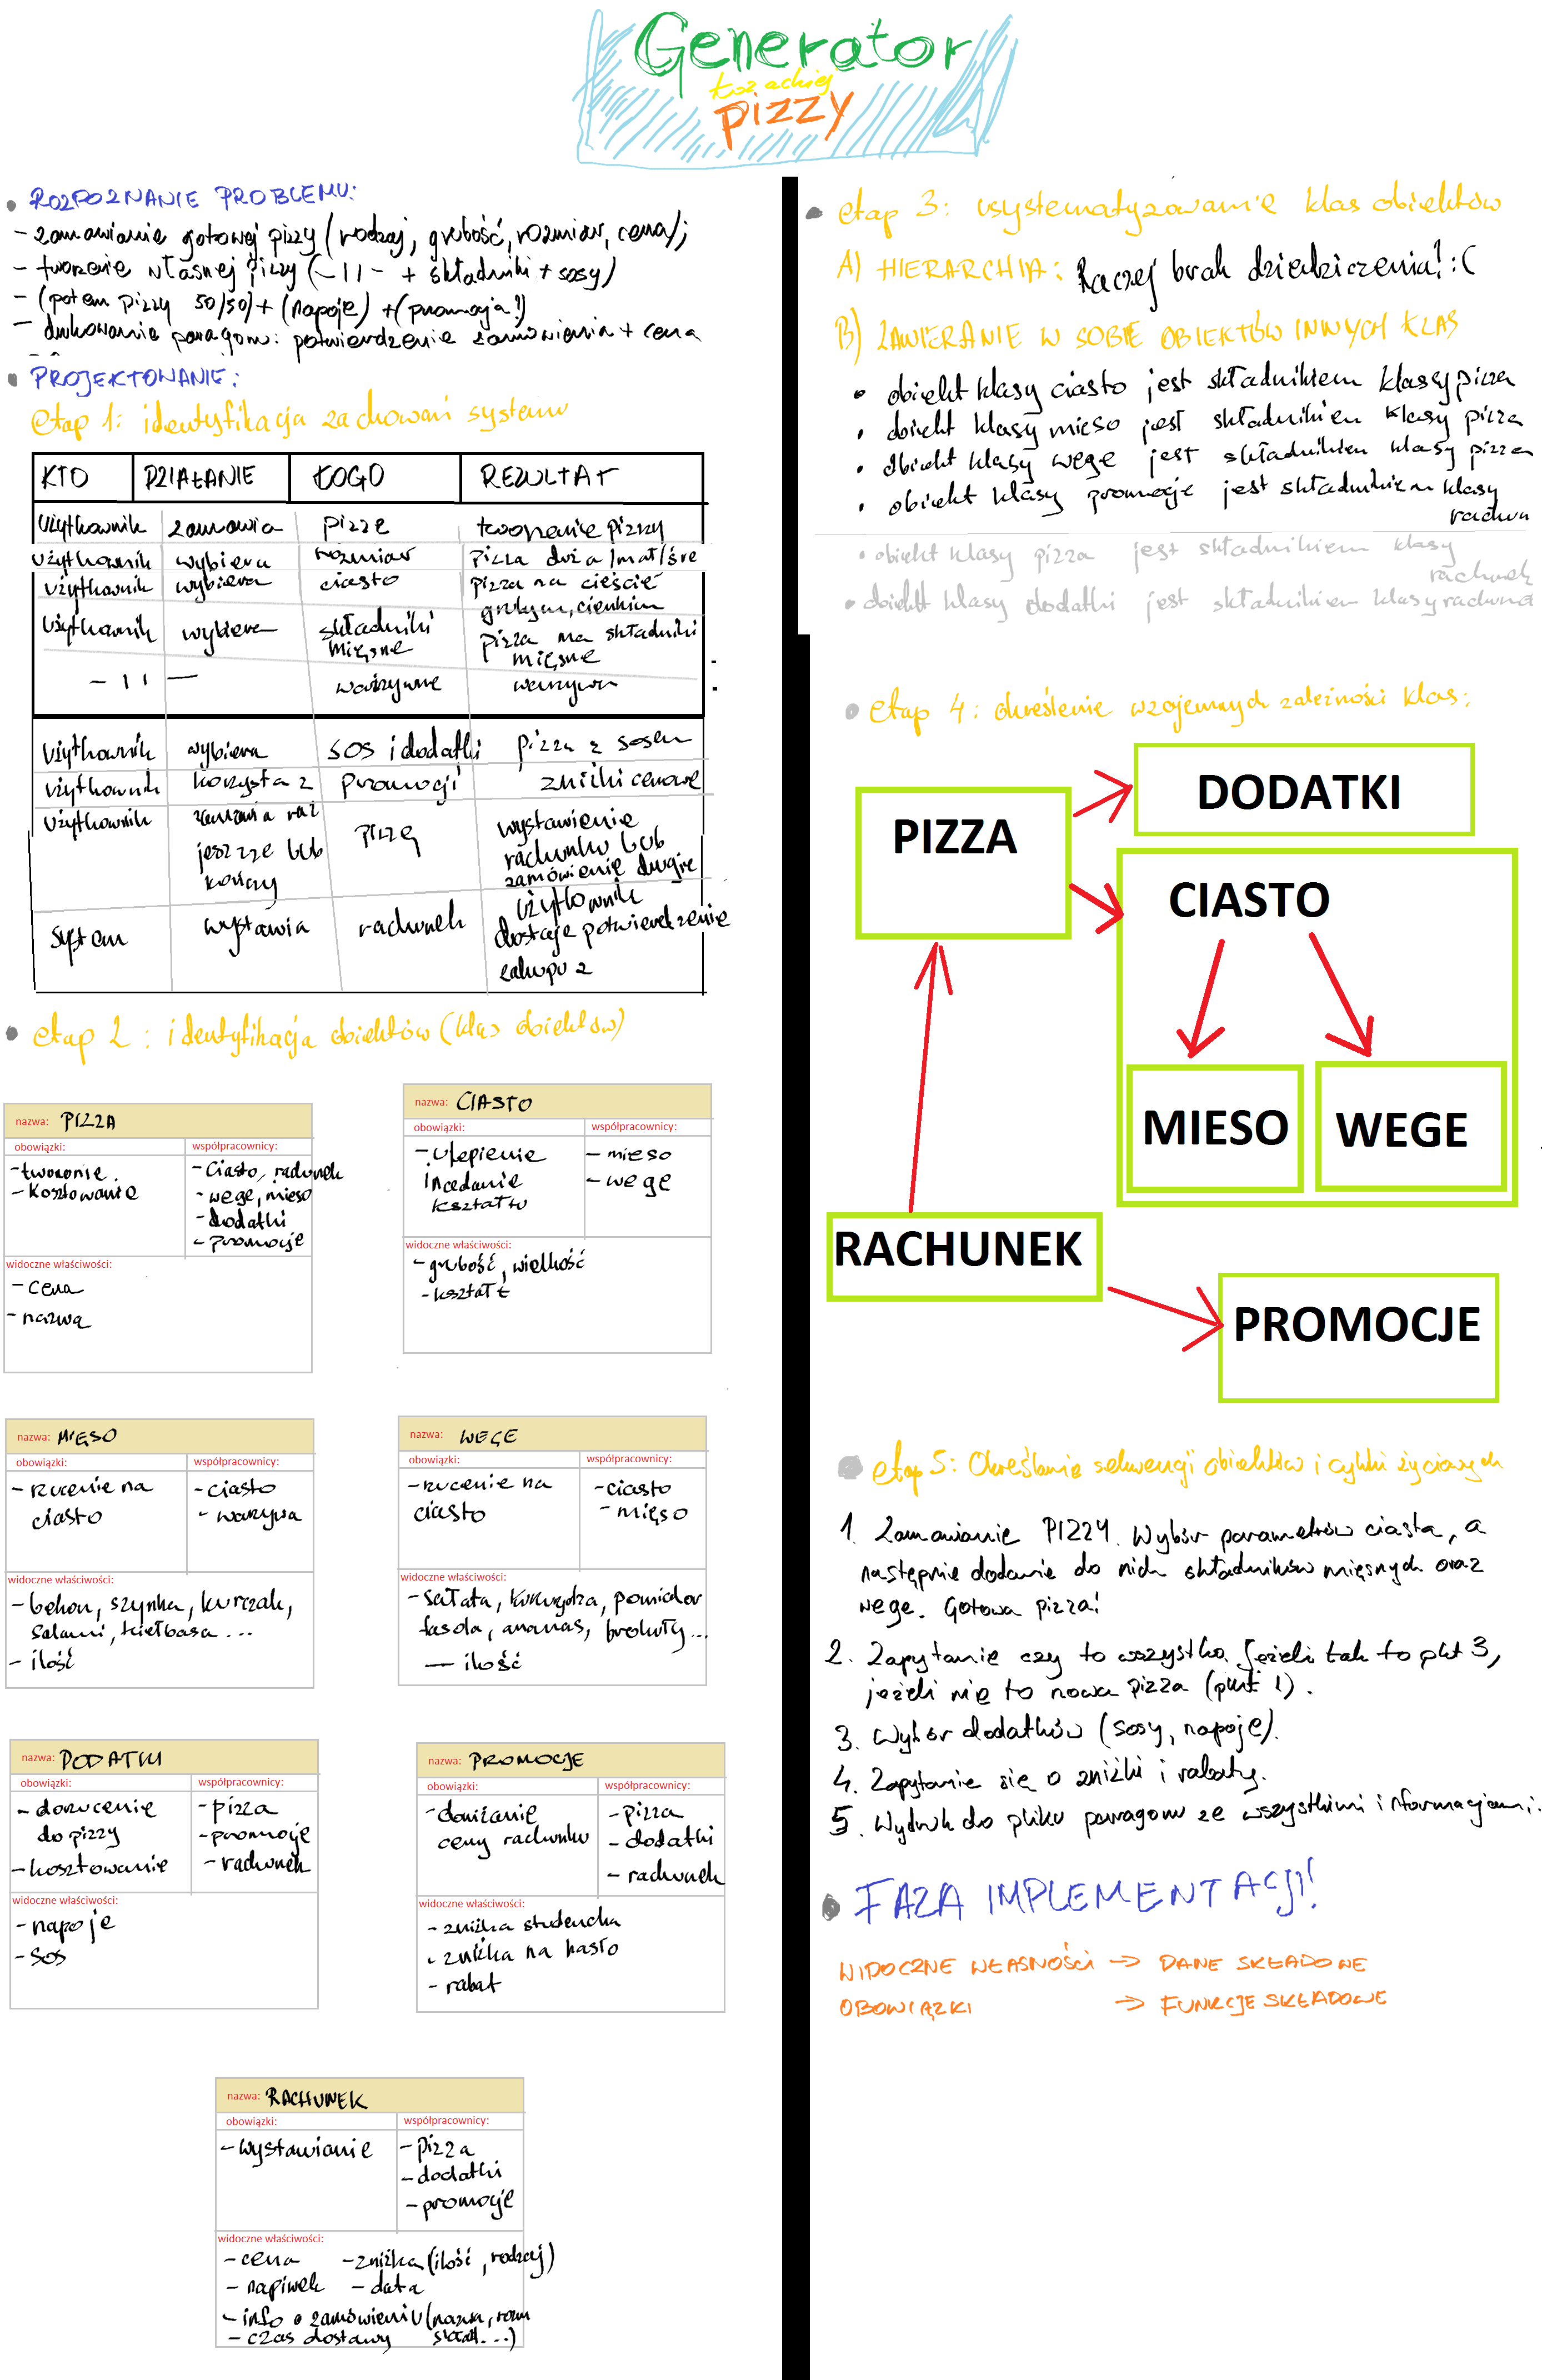 Generator
pizzy
ROZPOZNANIE PROBLEMU:
- zamawianie gotowej pizzy (rodzaj, grubość, rozmiar, cena);
- tworzenie własnej pizzy (-11- + składniki + sosy)
- (potem pizzy 50/50) + (napoje) + (promocja!)
- drukowanie paragonu: potwierdzenie zamówienia + cena
PROJEKTOWANIE:
etap 1: identyfikacja zachowań systemu
KTO DZIAŁANIE KOGO REZULTAT
użytkownik zamawia pizze tworzenie pizzy
użytkownik wybiera rozmiar pizza duża/mał/śre
użytkownik wybiera ciasto pizza na cieście
grubym, cienkim
użytkownik wybiera składniki mięsne pizza ma składniki mięsne
- 11 - warzywne warzywa
użytkownik wybiera sos i dodatki pizza z sosem
użytkownik korzysta z promocji zniżki cenowe
użytkownik zamawia raz jeszcze lub kończy pizzę wystawienie rachunku lub zamówienie drugie
system wystawia rachunek użytkownik dostaje potwierdzenie zakupu z
etap 2: identyfikacja obiektów (klas obiektów)
nazwa: PIZZA
obowiązki: współpracownicy:
- tworzenie.
- kosztowanie
- ciasto, rachunek
- wege, mieso
- dodatki
- promocje
widoczne właściwości:
- cena
- nazwa
nazwa: CIASTO
obowiązki: współpracownicy:
- ulepienie
kształtu
- mieso
- wege
widoczne właściwości:
- grubość, wielkość
- kształt
nazwa: MIĘSO
obowiązki: współpracownicy:
- rzucenie na
ciasto
- ciasto
- warzywa
widoczne właściwości:
- bekon, szynka, kurczak,
salami, kiełbasa ...
- ilość
nazwa: WEGE
obowiązki: współpracownicy:
- rzucenie na
ciasto
- ciasto
- mięso
widoczne właściwości:
- sałata, kukurydza, pomidor
fasola, ananas, brokuły...
- ilość
nazwa: DODATKI
obowiązki: współpracownicy:
- dorzucenie
do pizzy
- kosztowanie
- pizza
- promocje
- rachunek
widoczne właściwości:
- napoje
- sos
nazwa: PROMOCJE
obowiązki: współpracownicy:
- zaniżanie
ceny rachunku
- pizza
- dodatki
- rachunek
widoczne właściwości:
- zniżka studencka
- zniżka na hasło
- rabat
nazwa: RACHUNEK
obowiązki: współpracownicy:
- wystawianie
- pizza
- dodatki
- promocje
widoczne właściwości:
- cena - zniżka (ilość, rodzaj)
- napiwek - data
- info o zamówieniu (nazwa, rozm
- czas dostawy skład...)
etap 3: usystematyzowanie klas obiektów
A) HIERARCHIA: Raczej brak dziedziczenia! :(
B) ZAWIERANIE W SOBIE OBIEKTÓW INNYCH KLAS
• obiekt klasy ciasto jest składnikiem klasy pizza
• obiekt klasy mieso jest składnikiem klasy pizza
• obiekt klasy wege jest składnikiem klasy pizza
• obiekt klasy promocje jest składnikiem klasy
rachun
• obiekt klasy pizza jest składnikiem klasy
rachunek
• obiekt klasy dodatki jest składnikiem klasy rachunek
etap 4: określenie wzajemnych zależności klas:
DODATKI
PIZZA
CIASTO
MIESO WEGE
RACHUNEK
PROMOCJE
etap 5: Określanie sekwencji obiektów i cykli życiowych
1. Zamawianie PIZZY. Wybór parametrów ciasta, a
następnie dodanie do nich składników mięsnych oraz
wege. Gotowa pizza!
2. Zapytanie czy to wszystko. Jeżeli tak to pkt 3,
jeżeli nie to nowa pizza (pkt 1).
3. Wybór dodatków (sosy, napoje).
4. Zapytanie się o zniżki i rabaty.
5. Wydruk do pliku paragonu ze wszystkimi informacjami.
FAZA IMPLEMENTACJI!
WIDOCZNE WŁASNOŚCI → DANE SKŁADOWE
OBOWIĄZKI → FUNKCJE SKŁADOWE